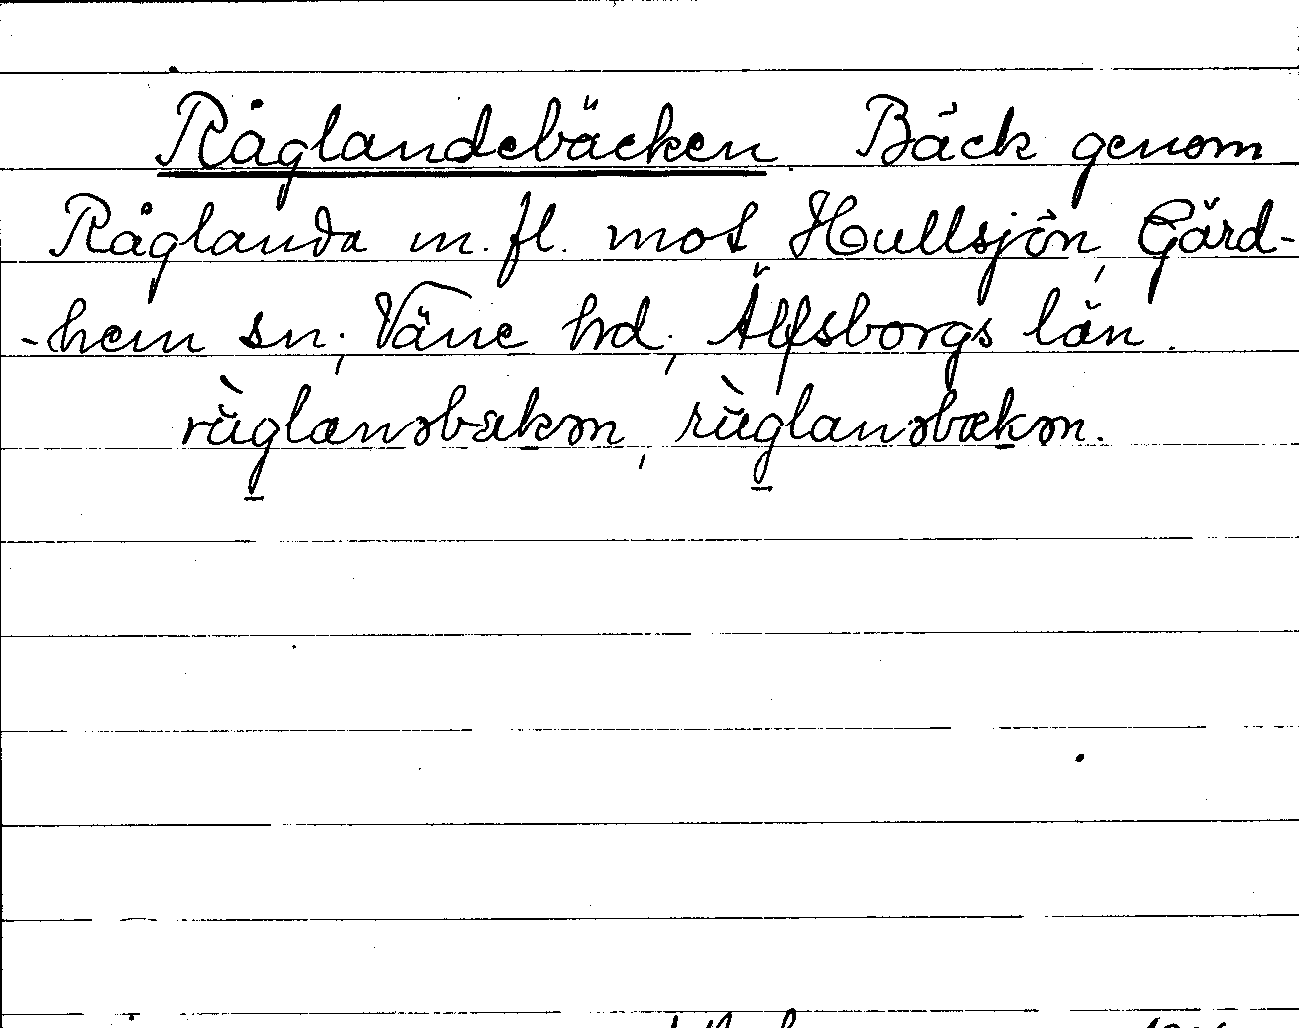 Råglandebäcken. Bäck genom
Råglanda m. fl. mot Hullsjön, Gärd-
-hem sn; Väne hd; Älfsborgs län.
rùglanəbækən, rùglanəbækən.